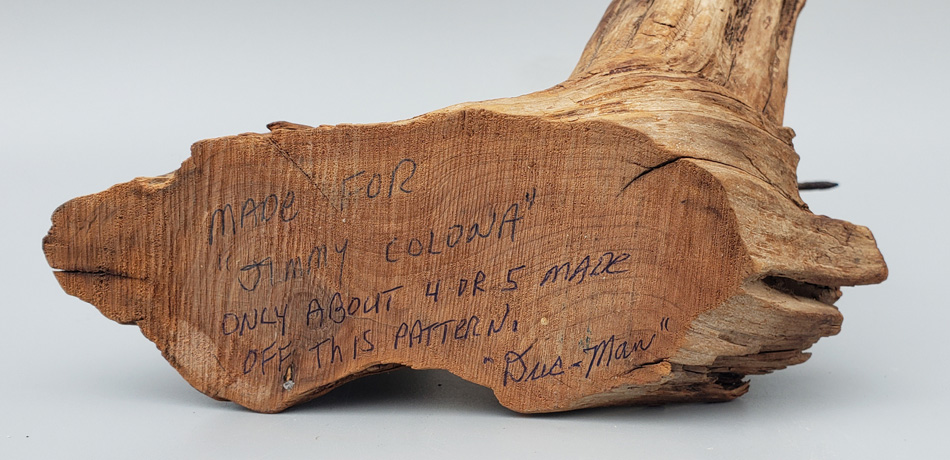 MADE FOR
"JIMMY COLONA"
ONLY ABOUT 4 OR 5 MADE
OFF THIS PATTERN.
"Duc-Man"